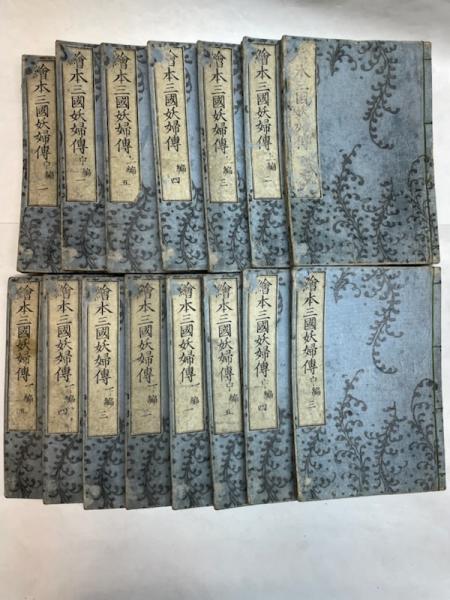 本三國妖婦傳
繪本三國妖婦傳 上編
繪本三國妖婦傳 上編 三
繪本三國妖婦傳 上編 四
繪本三國妖婦傳 上編 五
繪本三國妖婦傳 中編
繪本三國妖婦傳 中編 一
繪本三國妖婦傳 中編 三
繪本三國妖婦傳 中編 四
繪本三國妖婦傳 中編 五
繪本三國妖婦傳 下編 一
繪本三國妖婦傳 下編 二
繪本三國妖婦傳 下編 三
繪本三國妖婦傳 下編 四
繪本三國妖婦傳 下編 五